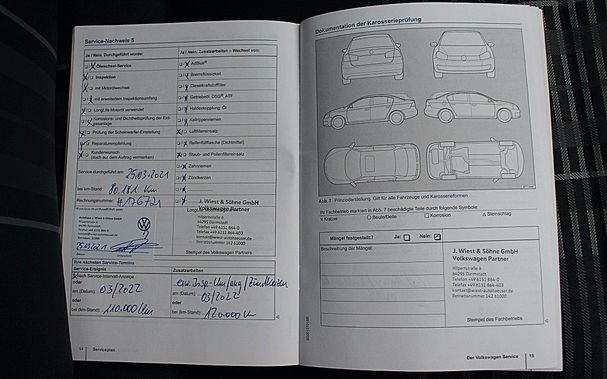 Service-Nachweis 5
Ja / Nein, Durchgeführt wurde:
Ölwechsel-Service
Inspektion
mit Motorölwechsel
mit erweitertem Inspektionsumfang
LongLife Motoröl verwendet
Korrosions- und Dichtheitsprüfung der Erdgasanlage
Prüfung der Scheinwerfer-Einstellung
Reparaturempfehlung
Kundenwunsch
(auch auf dem Auftrag vermerken)
Service durchgeführt am: 25.03.2021
bei km-Stand: 80.181 Km
Rechnungsnummer: #176721
25.03.2021
Datum
Unterschrift
Ja / Nein, Zusatzarbeiten – Wechsel von:
AdBlue®
Bremsflüssigkeit
Dieselkraftstofffilter
Getriebeöl: DSG®, ATF
Haldexkupplung: Öl
Keilrippenriemen
Luftfiltereinsatz
Reifenfüllflasche (Dichtmittel)
Staub- und Pollenfiltereinsatz
Zahnriemen
Zündkerzen
J. Wiest & Söhne GmbH
Volkswagen Partner
Hilpertstraße 8
64295 Darmstadt
Telefon +49 6151 864-0
Telefax +49 6151 864-403
Betriebsnummer 142 61000
Stempel des Volkswagen Partners
Ihre nächsten Service-Termine
Service-Ereignis
Nach Service-Intervall-Anzeige
oder
am (Datum): 03/2022
oder
bei (km-Stand): 110.000 Km
Zusatzarbeiten
erw. Insp.-Umfang/Zündkerzen
am (Datum): 03/2022
oder
bei (km-Stand): 120.000 Km
14 Serviceplan
Dokumentation der Karosserieprüfung
Abb. 7 Prinzipdarstellung. Gilt für alle Fahrzeuge und Karosserieformen
Ihr Fachbetrieb markiert in Abb. 7 beschädigte Teile durch folgende Symbole:
x Kratzer ○ Beule/Delle □ Korrosion △ Steinschlag
Mängel festgestellt? Ja: Nein:
Beschreibung der Mängel
J. Wiest & Söhne GmbH
Volkswagen Partner
Hilpertstraße 8
64295 Darmstadt
Telefon +49 6151 864-0
Telefax +49 6151 864-403
kontakt@wiest-autohaeuser.de
Betriebsnummer 142 61000
Stempel des Fachbetriebs
Der Volkswagen Service 15